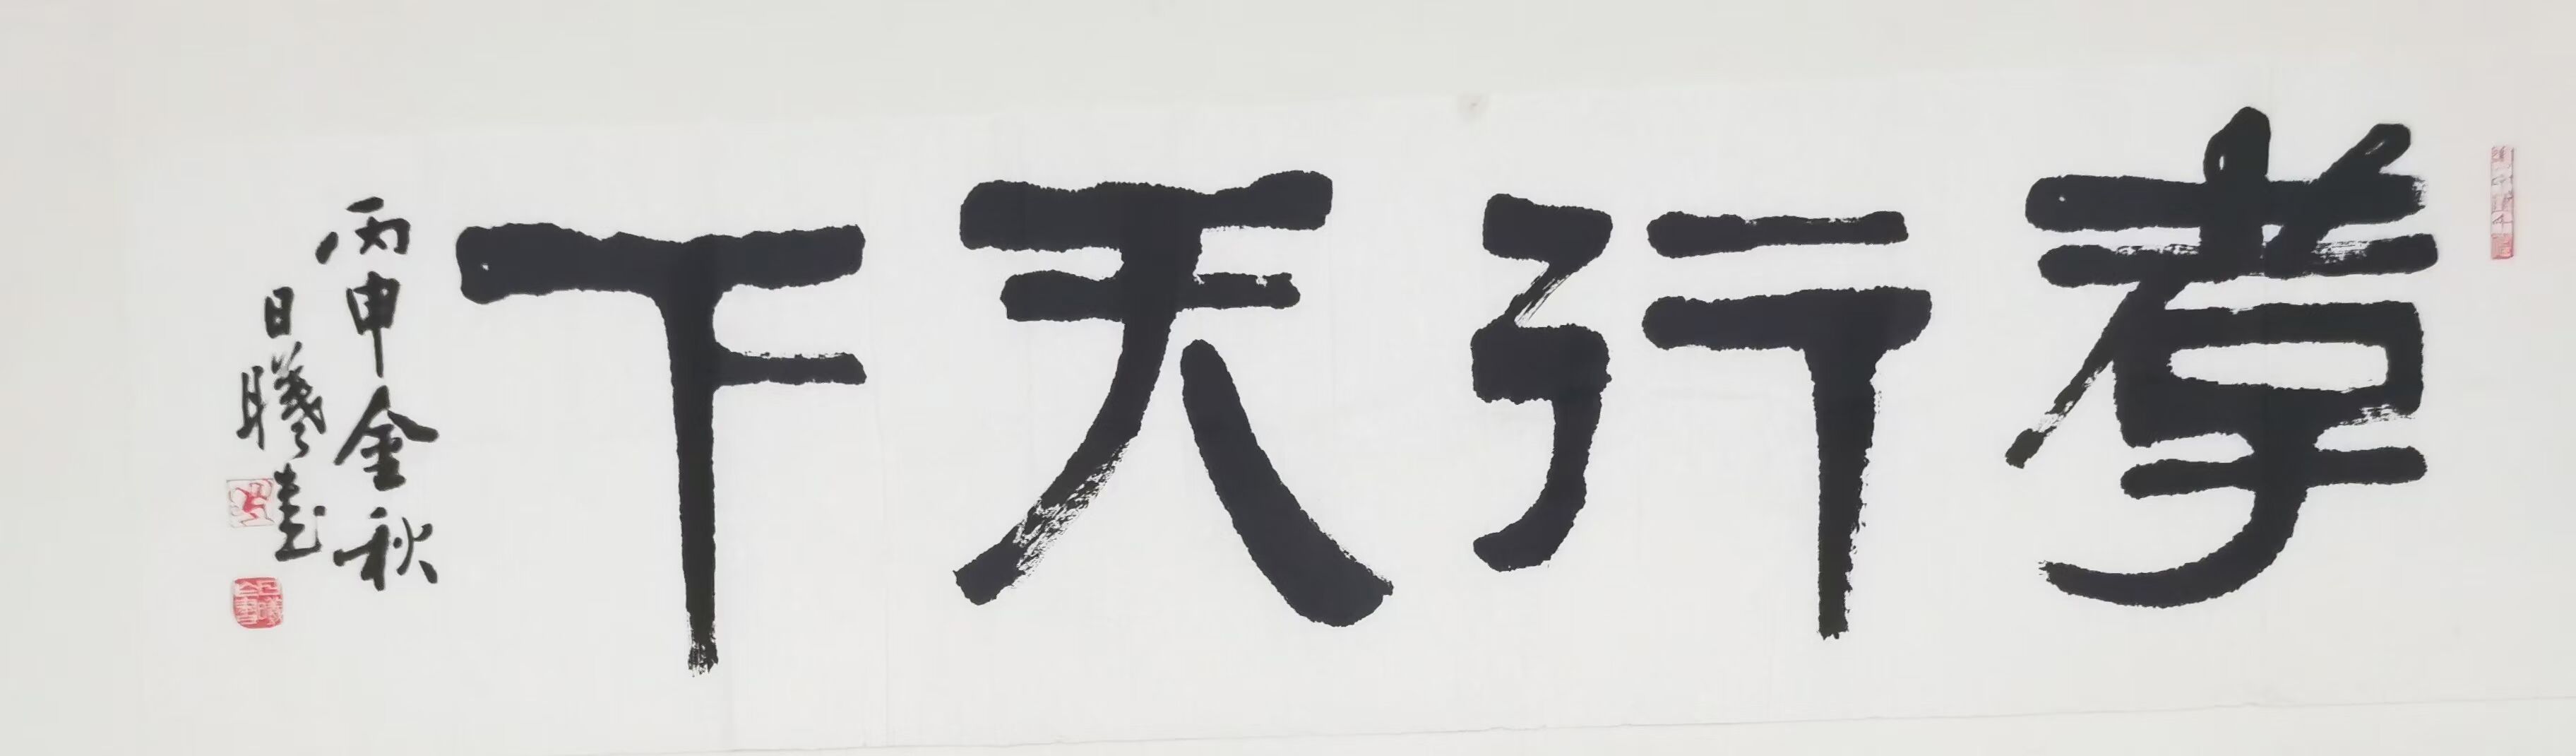 孝行天下
丙申金秋
日曦書